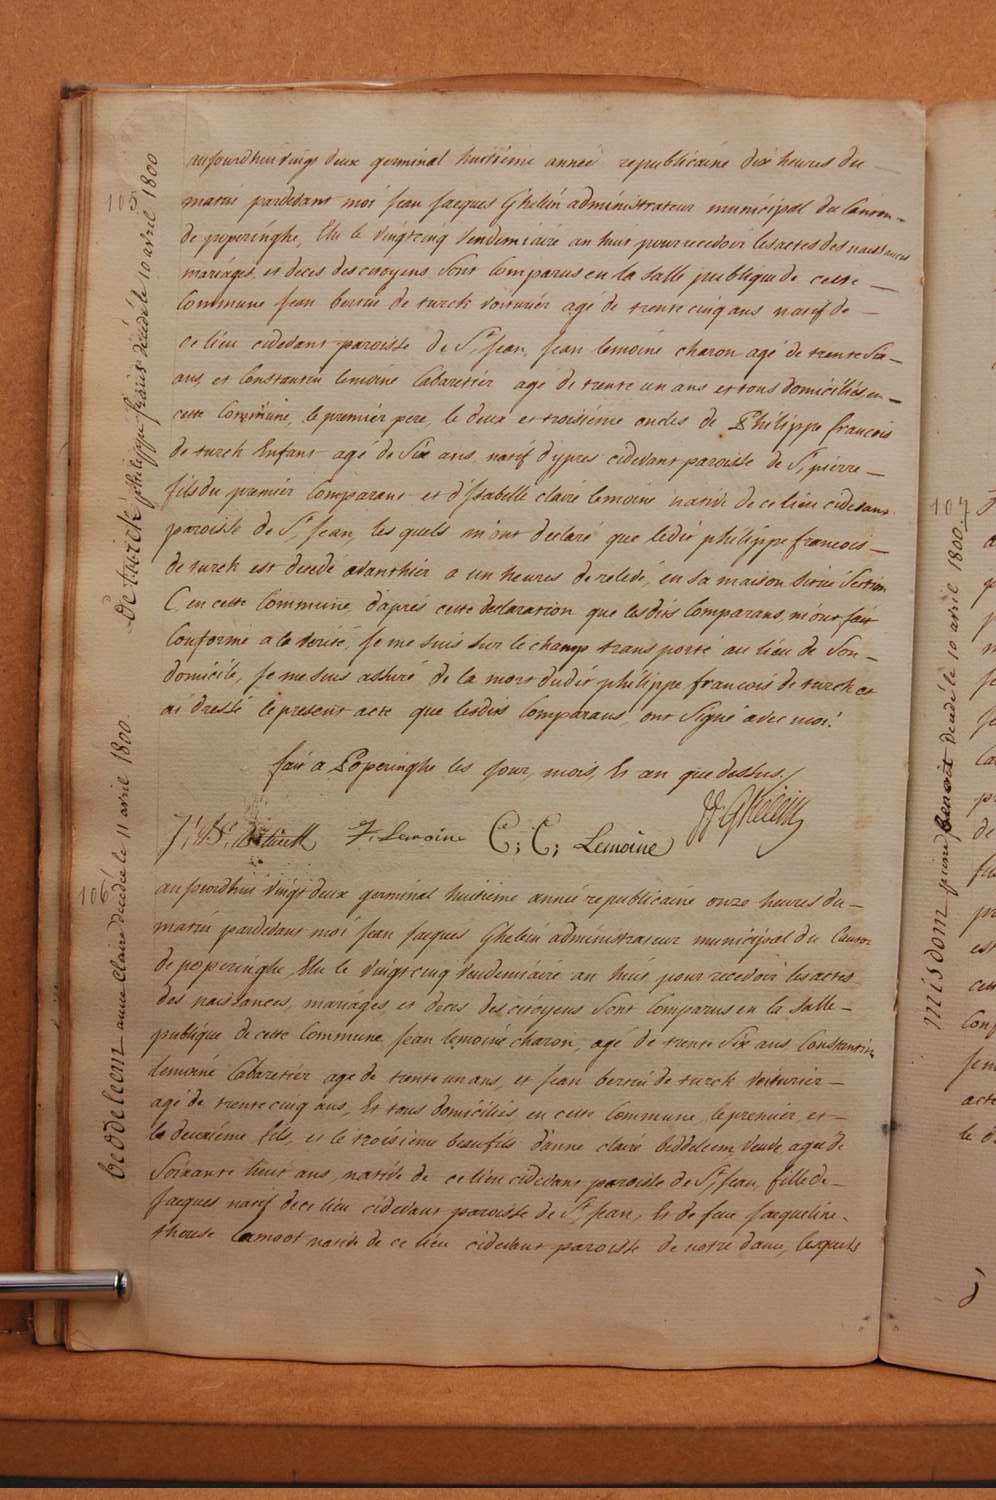 105
De turck philippe françois décédé le 10 avril 1800
aujourdhui vingt deux germinal huitieme année republicaine dix heures du
matin pardevant moi jean jacques Ghelein administrateur municipal du Canton
de poperinghe, Elu le vingtcinq Vendemiaire an huit pour recevoir les actes des naissances
mariages, et deces des citoyens sont Comparus en la salle publique de cette
Commune jean de turck voiturier agé de trente cinq ans natif de
ce lieu cidevant paroisse de St jean, jean lemoine charon agé de trente Six
ans, et Constantin lemoine Cabaretier agé de trente un ans et tous domiciliés en
cette Commune, le premier pere, le deux et troisieme oncles de Philippe francois
de turck Enfant agé de Six ans, natif d'ypres cidevant paroisse de St pierre
fils du premier Comparant et d'Isabelle claire lemoine native de ce lieu cidevant
paroisse de St jean, les quels m'ont declaré que ledit philippe francois
de turck est decedé avanthier a un heures de relevé, en sa maison située Section
C, en cette Commune, d'après cette declaration que lesdits Comparans, m'ont fait
Conforme a la verité, je me suis sur le champ transporté au lieu de Son
domicile, je me suis assuré de la mort dudit philippe francois de turck et
ai dressé le present acte que lesdits Comparans ont Signé avec moi.
fait a Poperinghe les jour, mois, Et an que dessus.
J. Lemoine C: C: Lemoine JJ Ghelein
106
beddeleem anne Claire decedée le 11 avril 1800.
aujourdhui vingt deux germinal huitieme année republicaine onze heures du
matin pardevant moi jean jacques Ghelein administrateur municipal du Canton
de poperinghe, Elu le vingtcinq Vendemiaire an huit pour recevoir les actes
des naissances, mariages, et deces des citoyens sont Comparus en la Salle
publique de cette Commune, jean lemoine charon, agé de trente Six ans Constantin
lemoine Cabaretier age de trente un ans, et jean de turck voiturier
agé de trente cinq ans, Et tous domiciliés en cette Commune, le premier, et
le deuxieme fils, et le troisieme beaufils d'anne claire beddeleem, veuve agée de
Soixante huit ans, native de ce lieu cidevant paroisse de St jean, fille de
jacques natif de ce lieu cidevant paroisse de St jean, Et de feue jacqueline
lamoot native de ce lieu cidevant paroisse de notre dame, lesquels
107
misdom benoit decedé le 10 avril 1800.